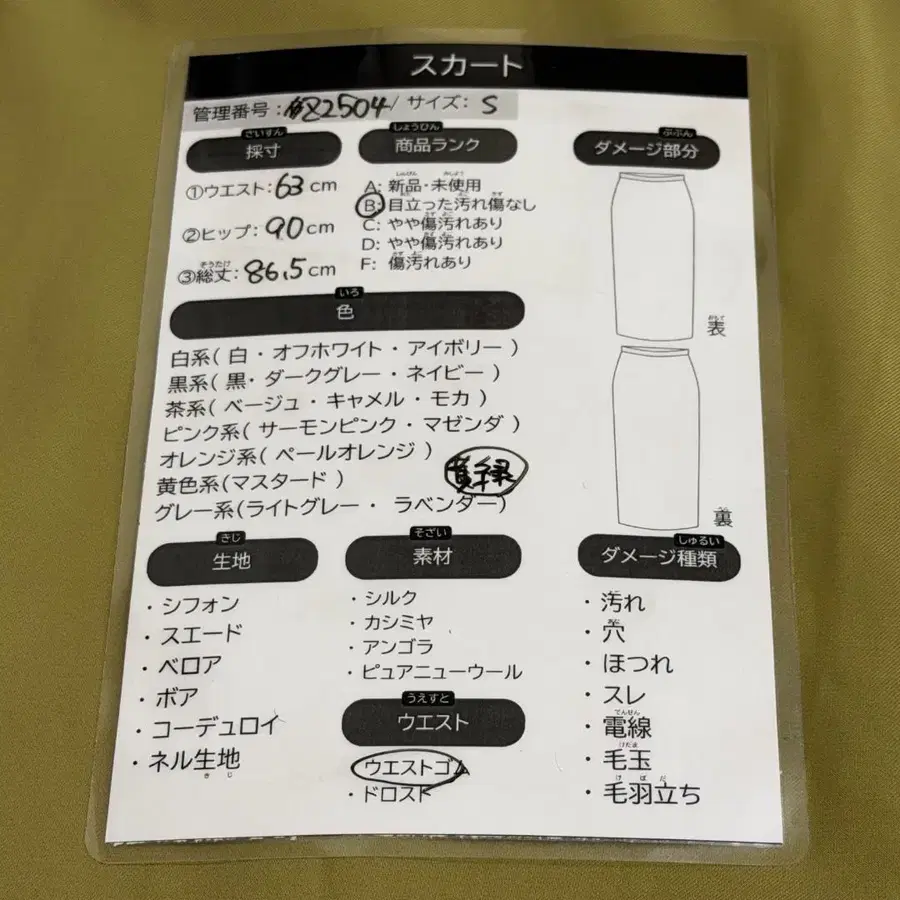 スカート
管理番号:#82504/ サイズ: S
ざいすん
採寸
①ウエスト: 63 cm
②ヒップ: 90 cm
そうたけ
③総丈: 86.5 cm
しょうひん
商品ランク
しんぴん みしよう
A: 新品・未使用
B: 目立った汚れ傷なし
C: やや傷汚れあり
D: やや傷汚れあり
F: 傷汚れあり
ぶぶん
ダメージ部分
おもて
表
裏
いろ
色
白系( 白・オフホワイト・アイボリー )
黒系( 黒・ダークグレー・ネイビー )
茶系( ベージュ・キャメル・モカ )
ピンク系( サーモンピンク・マゼンダ )
オレンジ系( ペールオレンジ )
黄色系(マスタード )
グレー系(ライトグレー・ ラベンダー)
黄緑
きじ
生地
・シフォン
・スエード
・ベロア
・ボア
・コーデュロイ
・ネル生地
きじ
そざい
素材
・シルク
・カシミヤ
・アンゴラ
・ピュアニューウール
うえすと
ウエスト
ウエストゴム
・ドロスト
しゅるい
ダメージ種類
・汚れ
・穴
・ほつれ
・スレ
でんせん
・電線
けだま
・毛玉
けばだ
・毛羽立ち